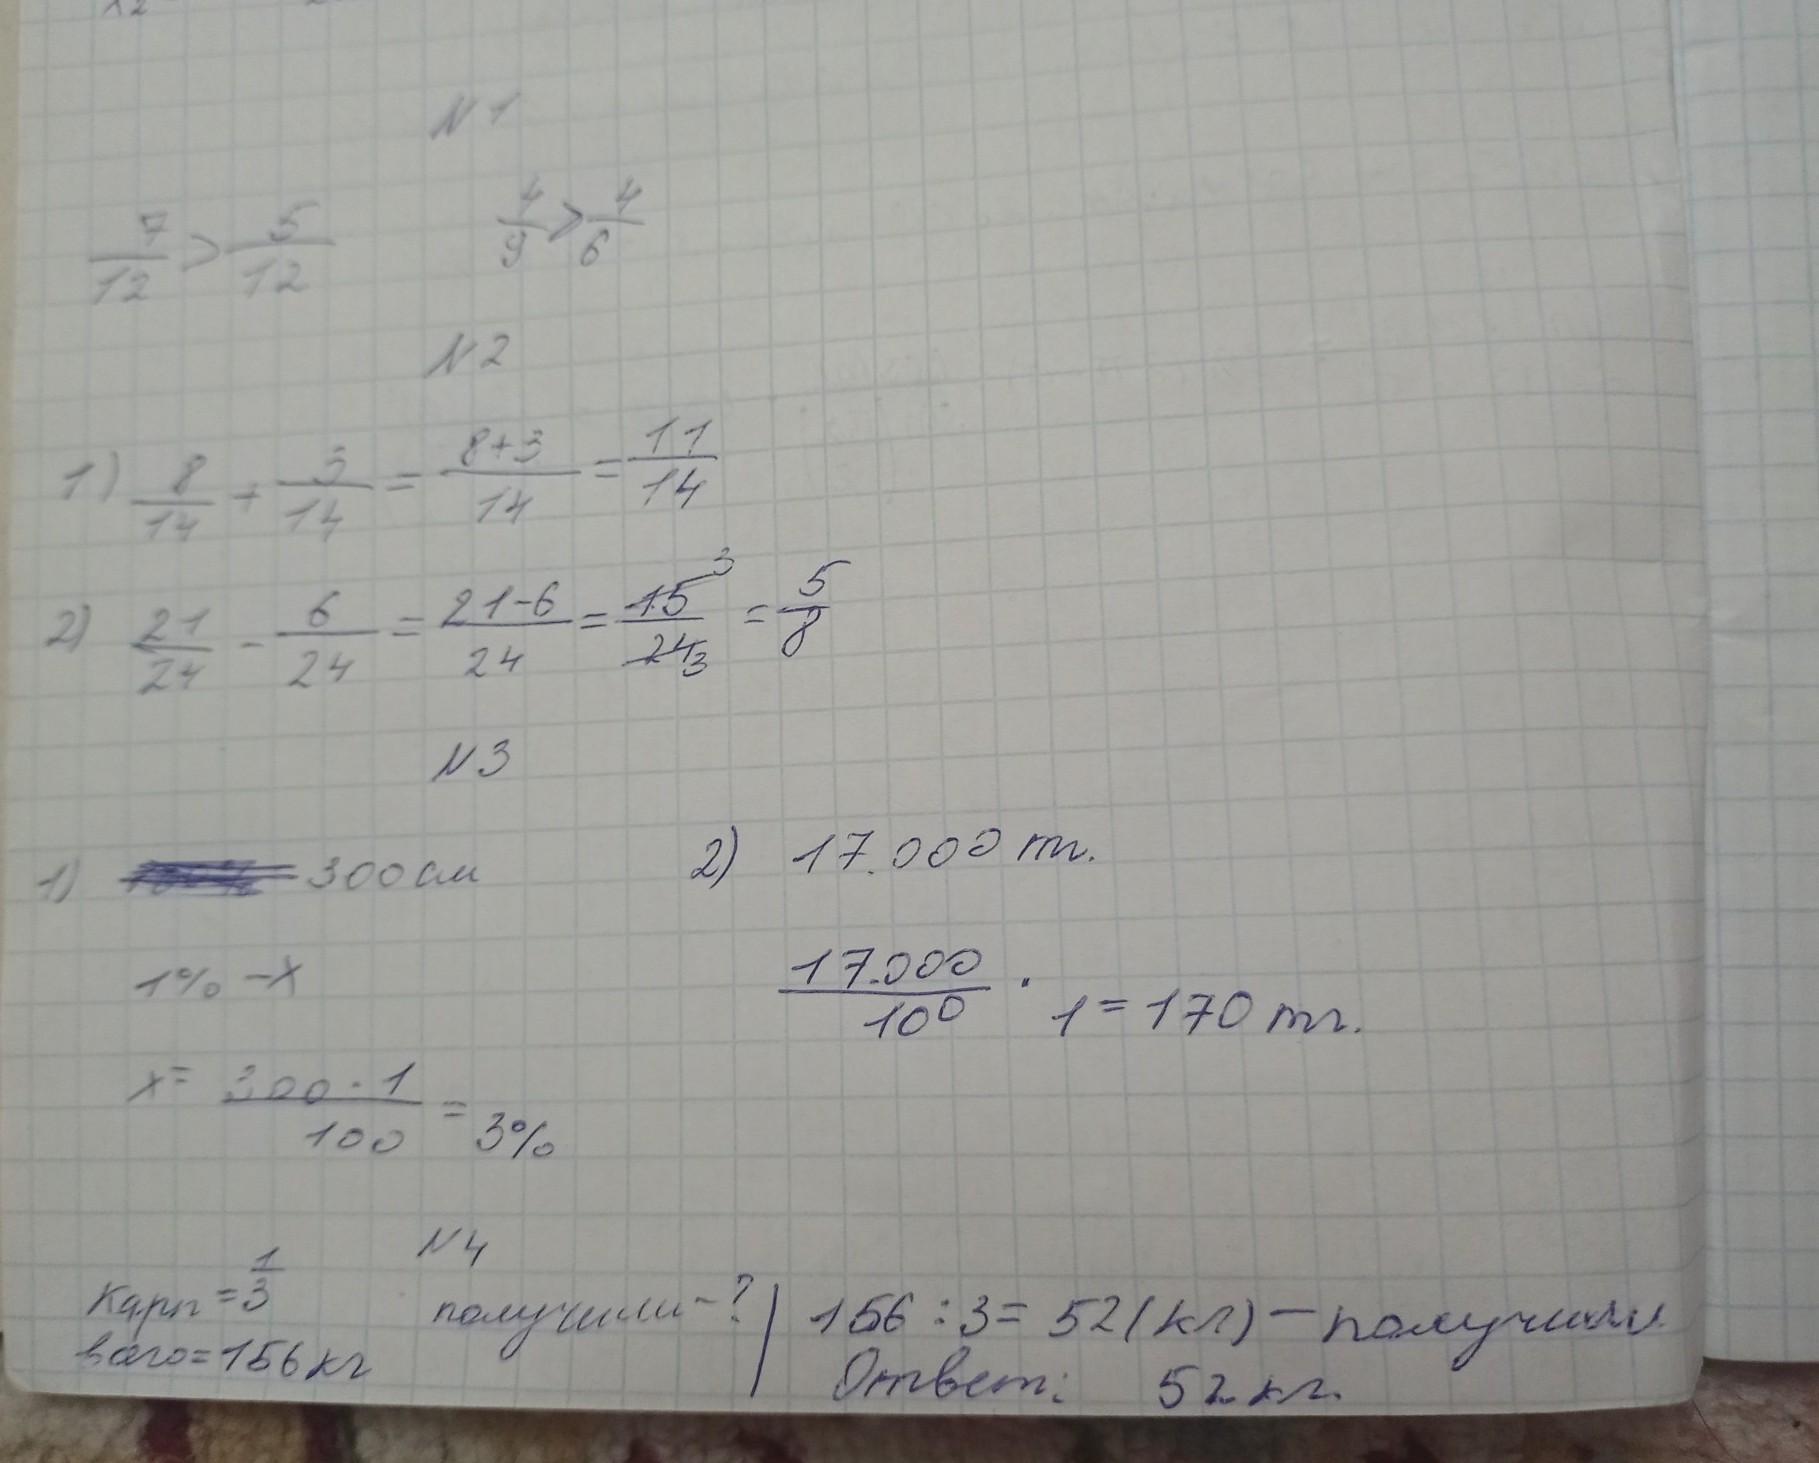 N1
7/12 > 5/12    4/9 > 4/6
N2
1) 8/14 + 3/14 = 8+3/14 = 11/14
2) 21/24 - 6/24 = 21-6/24 = 15 3/24 3 = 5/8
N3
1) 300 см
1% - x
x = 300 · 1/100 = 3%
2) 17.000 тг.
17.000/100 · 1 = 170 тг.
N4
Карп = 1/3    получили - ?
156кг
156 : 3 = 52 (кг) - получили
Ответ: 52 кг.